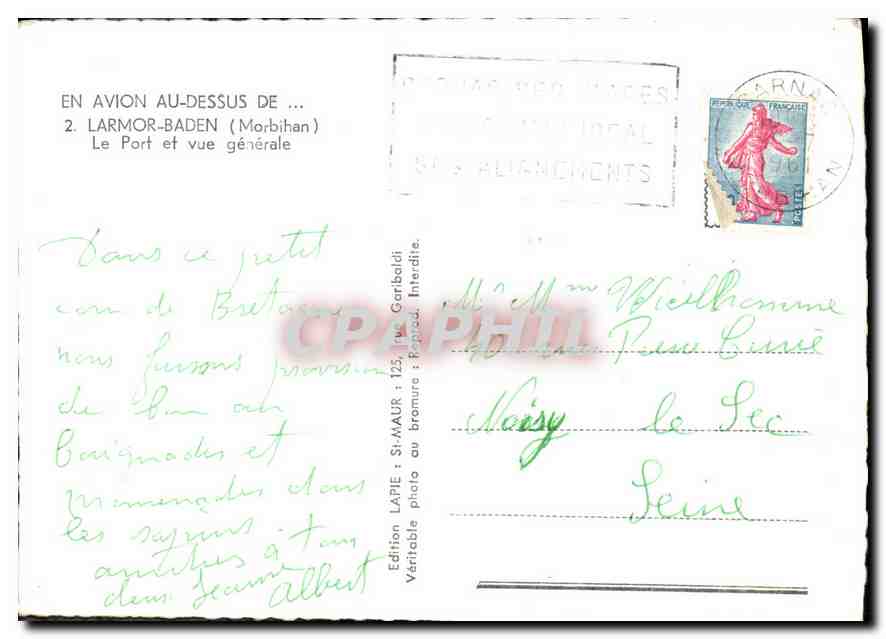 EN AVION AU-DESSUS DE ...
2. LARMOR-BADEN (Morbihan)
Le Port et vue générale
PLAGES
IDEAL
SES ALIGNEMENTS
CARNAC
REPUBLIQUE FRANÇAISE
POSTES
Dans ce petit
coin de Bretagne
nous faisons provision
de bon air
baignades et
promenades dans
les sapins. à tous
deux Jeanne Albert
Edition LAPIE : St-MAUR : 125, rue Garibaldi
Véritable photo au bromure : Reprod. Interdite.
Mr Mme Vieilhomme
rue Pierre Curie
Noisy le Sec
Seine
CPAPHIL